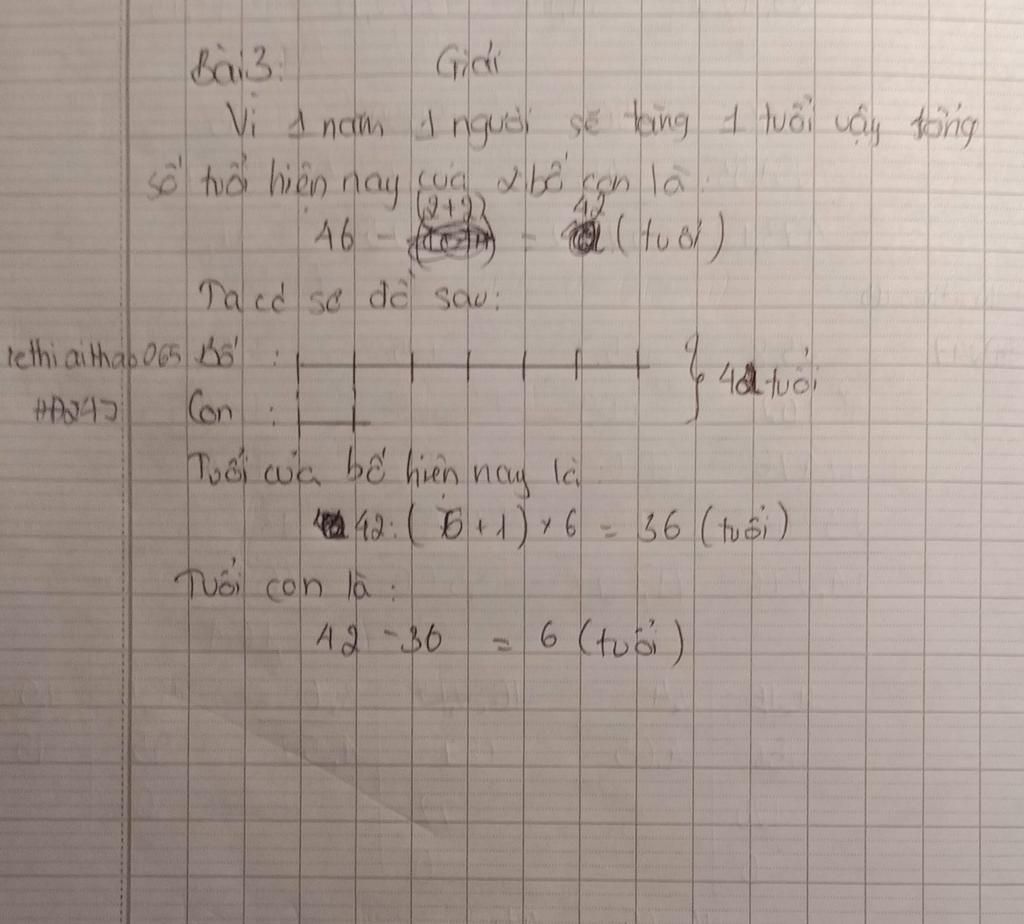 Bài 3: Giải
Vì 1 năm 1 người sẽ tăng 1 tuổi vậy tổng
số tuổi hiện nay của 2 bố con là:
46 - (2+2) = 42 (tuổi)
Ta có sơ đồ sau:
lethiaithao065 Bố : 42 tuổi
Con :
Tuổi của bố hiện nay là
42: (6 + 1) × 6 = 36 (tuổi)
Tuổi con là :
42 - 36 = 6 (tuổi)